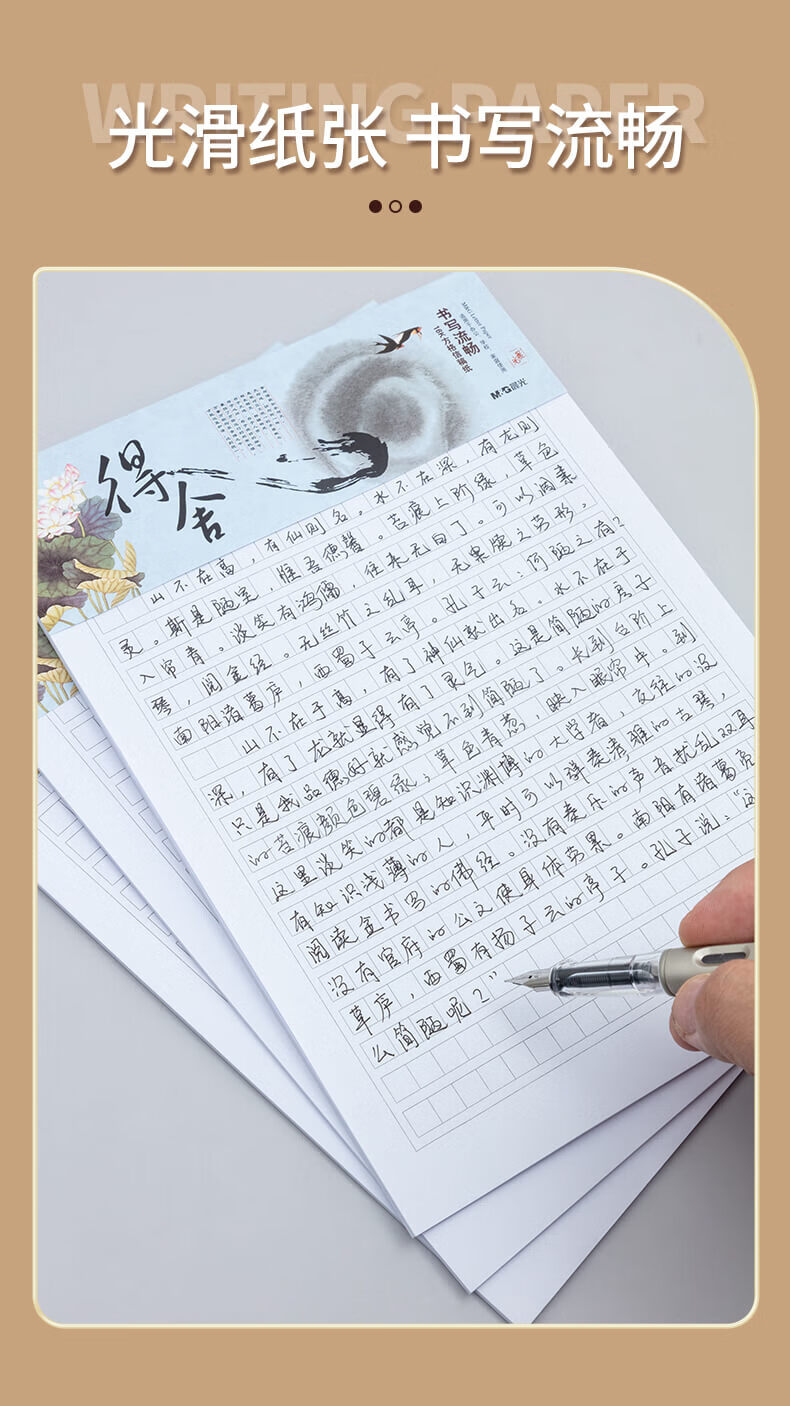 WRITING PAPER
光滑纸张 书写流畅
书写流畅
16K方格信稿纸
M&G晨光
得舍
山不在高，有仙则名。水不在深，有龙则
灵。斯是陋室，惟吾德馨。苔痕上阶绿，草色
入帘青。谈笑有鸿儒，往来无白丁。可以调素
琴，阅金经。无丝竹之乱耳，无案牍之劳形，
南阳诸葛庐，西蜀子云亭。孔子云：何陋之有？
山不在于高，有了神仙就出名。水不在于
深，有了龙就显得有了灵气。这是简陋的房子
只是我品德好就感觉不到简陋了。长到台阶上
的苔痕颜色碧绿；草色青葱，映入眼帘中。到
这里谈笑的都是知识渊博的大学者，交往的没
有知识浅薄的人，平时可以弹奏清雅的古琴，
阅读金书写的佛经。没有奏乐的声音扰乱双耳
没有官府的公文使身体劳累。南阳有诸葛亮
草庐，西蜀有扬子云的亭子。孔子说："这
么简陋呢？"